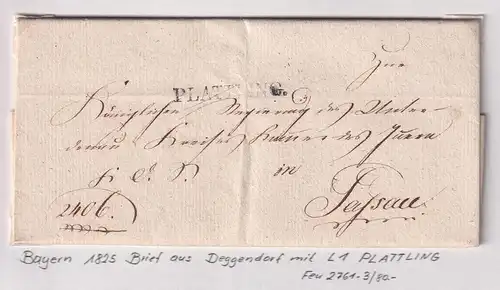 Zur
PLATTLING.
Königlichen Regierung des Unter-
donau Kreises Kammer des Innern
in
2406.
Passau.
Bayern 1825 Brief aus Deggendorf mit L1 PLATTLING
Feu 2761-3/80.-